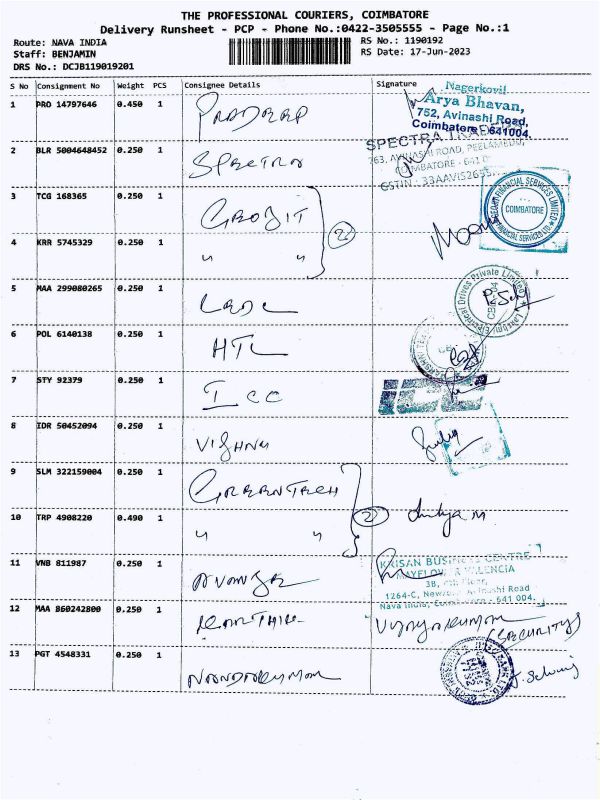 THE PROFESSIONAL COURIERS, COIMBATORE
Delivery Runsheet - PCP - Phone No.:0422-3505555 - Page No.:1
Route: NAVA INDIA
Staff: BENJAMIN
DRS No.: DCJB119019201
RS No.: 1190192
RS Date: 17-Jun-2023
S No Consignment No Weight PCS Consignee Details Signature
1 PRO 14797646 0.450 1 PRADEEP
Nagerkovil
Arya Bhavan,
752, Avinashi Road,
Coimbatore - 641004.
2 BLR 5004648452 0.250 1 SPECTRA
SPECTRA
763, AVINASHI ROAD, PEELAMEDU,
COIMBATORE - 641 0
GSTIN : 33AAVIS265
3 TCG 168365 0.250 1 CREDIT
FINANCIAL SERVICES LIMITED
COIMBATORE
4 KRR 5745329 0.250 1 " "
2
5 MAA 299080265 0.250 1
Laxmi Electrical Drives Private Limited
6 POL 6140138 0.250 1 HTL
7 STY 92379 0.250 1 ICC
8 IDR 50452094 0.250 1 VISHNU
9 SLM 322159004 0.250 1 GREENTECH
10 TRP 4908220 0.490 1 " "
2
11 VNB 811987 0.250 1
KRISAN BUSINESS CENTRE
MAYFLOWER VALENCIA
Floor,
1264-C, Avinashi Road
Nava India, - 641 004.
12 MAA 860242800 0.250 1 KARTHIK
VIJAYAKUMAR
(SECURITY)
13 PGT 4548331 0.250 1 NANDAKUMAR